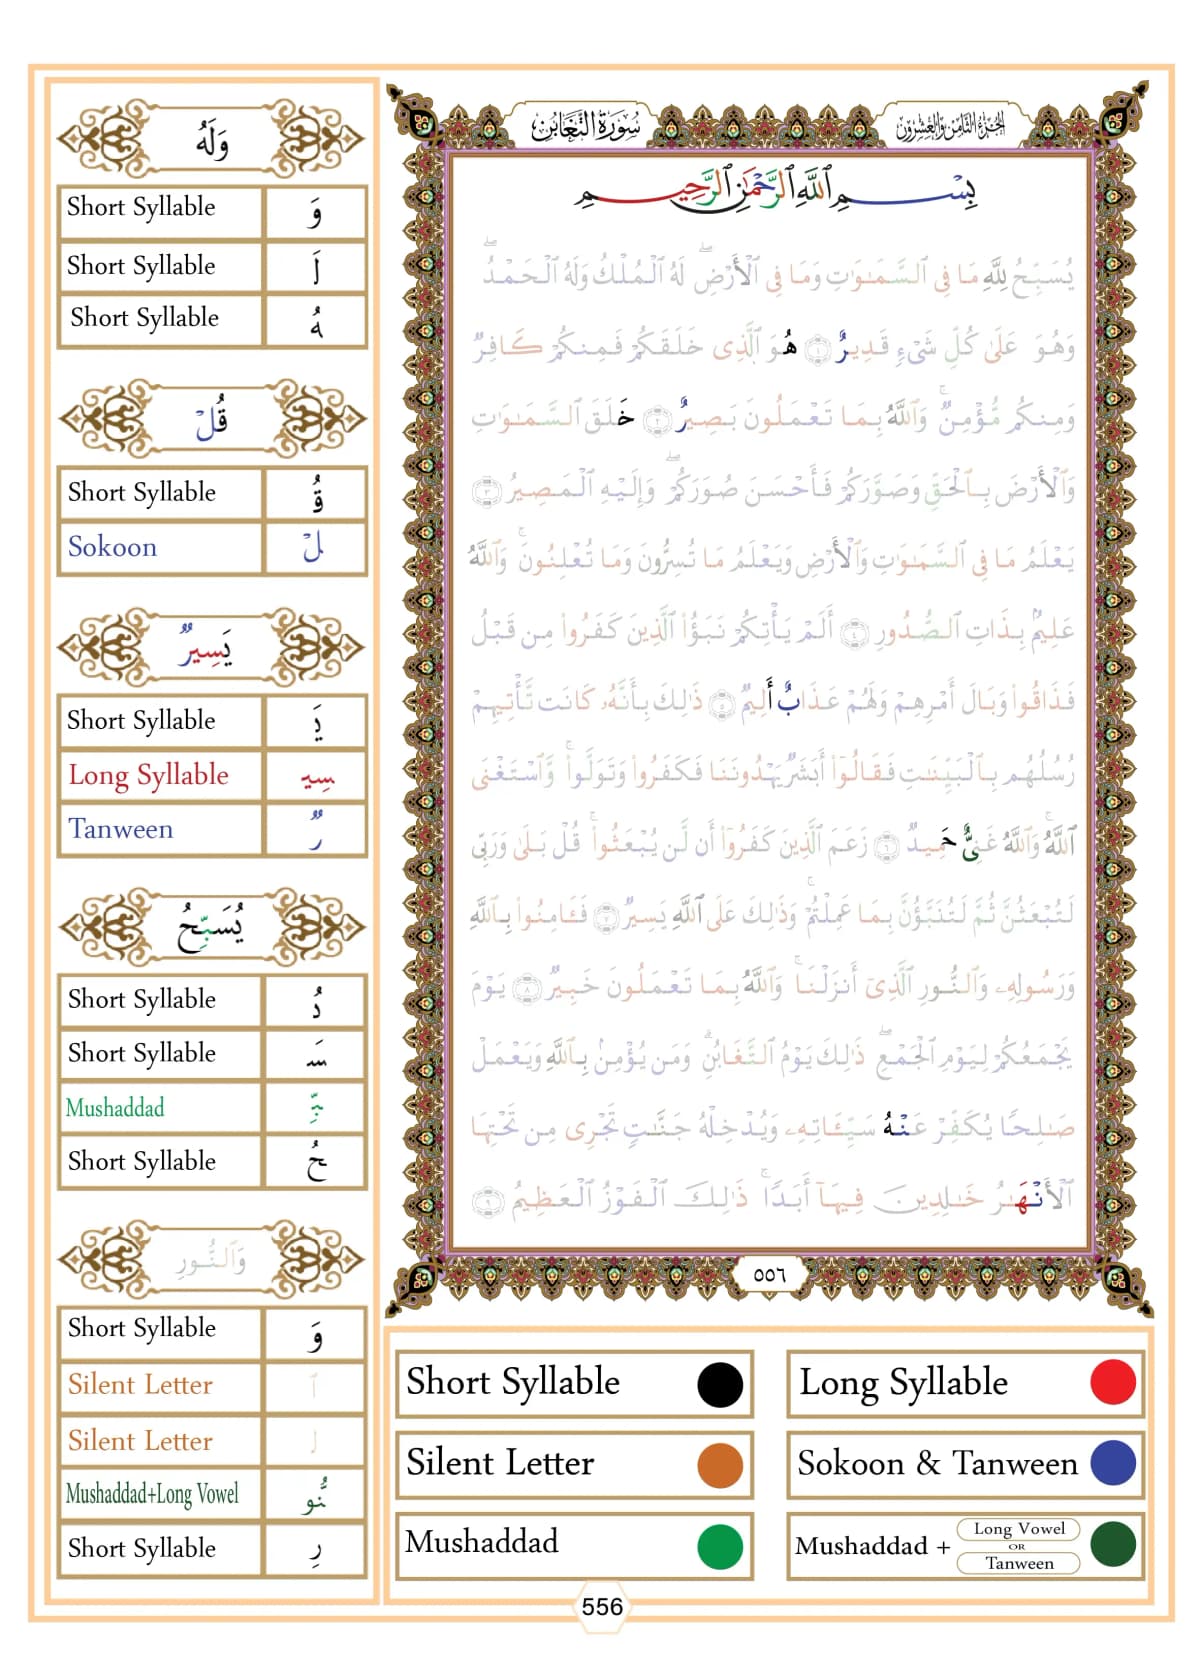 وَلَهُ
Short Syllable وَ
Short Syllable لَ
Short Syllable هُ
قُلْ
Short Syllable قُ
Sokoon لْ
يَسِيرٌ
Short Syllable يَ
Long Syllable سِي
Tanween رٌ
يُسَبِّحُ
Short Syllable يُ
Short Syllable سَ
Mushaddad بِّ
Short Syllable حُ
وَٱلنُّورِ
Short Syllable وَ
Silent Letter ٱ
Silent Letter ل
Mushaddad+Long Vowel نُّو
Short Syllable رِ
الجزء الثامن والعشرون سورة التغابن
بِسْمِ ٱللَّهِ ٱلرَّحْمَٰنِ ٱلرَّحِيمِ
يُسَبِّحُ لِلَّهِ مَا فِي ٱلسَّمَٰوَٰتِ وَمَا فِي ٱلْأَرْضِۖ لَهُ ٱلْمُلْكُ وَلَهُ ٱلْحَمْدُۖ
وَهُوَ عَلَىٰ كُلِّ شَىْءٍ قَدِيرٌ ١ هُوَ ٱلَّذِى خَلَقَكُمْ فَمِنكُمْ كَافِرٌ
وَمِنكُم مُّؤْمِنٌۚ وَٱللَّهُ بِمَا تَعْمَلُونَ بَصِيرٌ ٢ خَلَقَ ٱلسَّمَٰوَٰتِ
وَٱلْأَرْضَ بِٱلْحَقِّ وَصَوَّرَكُمْ فَأَحْسَنَ صُوَرَكُمْۖ وَإِلَيْهِ ٱلْمَصِيرُ ٣
يَعْلَمُ مَا فِي ٱلسَّمَٰوَٰتِ وَٱلْأَرْضِ وَيَعْلَمُ مَا تُسِرُّونَ وَمَا تُعْلِنُونَۚ وَٱللَّهُ
عَلِيمٌۢ بِذَاتِ ٱلصُّدُورِ ٤ أَلَمْ يَأْتِكُمْ نَبَؤُا۟ ٱلَّذِينَ كَفَرُوا۟ مِن قَبْلُ
فَذَاقُوا۟ وَبَالَ أَمْرِهِمْ وَلَهُمْ عَذَابٌ أَلِيمٌ ٥ ذَٰلِكَ بِأَنَّهُۥ كَانَت تَّأْتِيهِمْ
رُسُلُهُم بِٱلْبَيِّنَٰتِ فَقَالُوٓا۟ أَبَشَرٌ يَهْدُونَنَا فَكَفَرُوا۟ وَتَوَلَّوا۟ۚ وَّٱسْتَغْنَى
ٱللَّهُۚ وَٱللَّهُ غَنِىٌّ حَمِيدٌ ٦ زَعَمَ ٱلَّذِينَ كَفَرُوٓا۟ أَن لَّن يُبْعَثُوا۟ۚ قُلْ بَلَىٰ وَرَبِّى
لَتُبْعَثُنَّ ثُمَّ لَتُنَبَّؤُنَّ بِمَا عَمِلْتُمْۚ وَذَٰلِكَ عَلَى ٱللَّهِ يَسِيرٌ ٧ فَـَٔامِنُوا۟ بِٱللَّهِ
وَرَسُولِهِۦ وَٱلنُّورِ ٱلَّذِىٓ أَنزَلْنَاۚ وَٱللَّهُ بِمَا تَعْمَلُونَ خَبِيرٌ ٨ يَوْمَ
يَجْمَعُكُمْ لِيَوْمِ ٱلْجَمْعِۖ ذَٰلِكَ يَوْمُ ٱلتَّغَابُنِۗ وَمَن يُؤْمِنۢ بِٱللَّهِ وَيَعْمَلْ
صَٰلِحًا يُكَفِّرْ عَنْهُ سَيِّـَٔاتِهِۦ وَيُدْخِلْهُ جَنَّٰتٍ تَجْرِى مِن تَحْتِهَا
ٱلْأَنْهَٰرُ خَٰلِدِينَ فِيهَآ أَبَدًاۚ ذَٰلِكَ ٱلْفَوْزُ ٱلْعَظِيمُ ٩
٥٥٦
Short Syllable
Long Syllable
Silent Letter
Sokoon & Tanween
Mushaddad
Mushaddad + Long Vowel OR Tanween
556